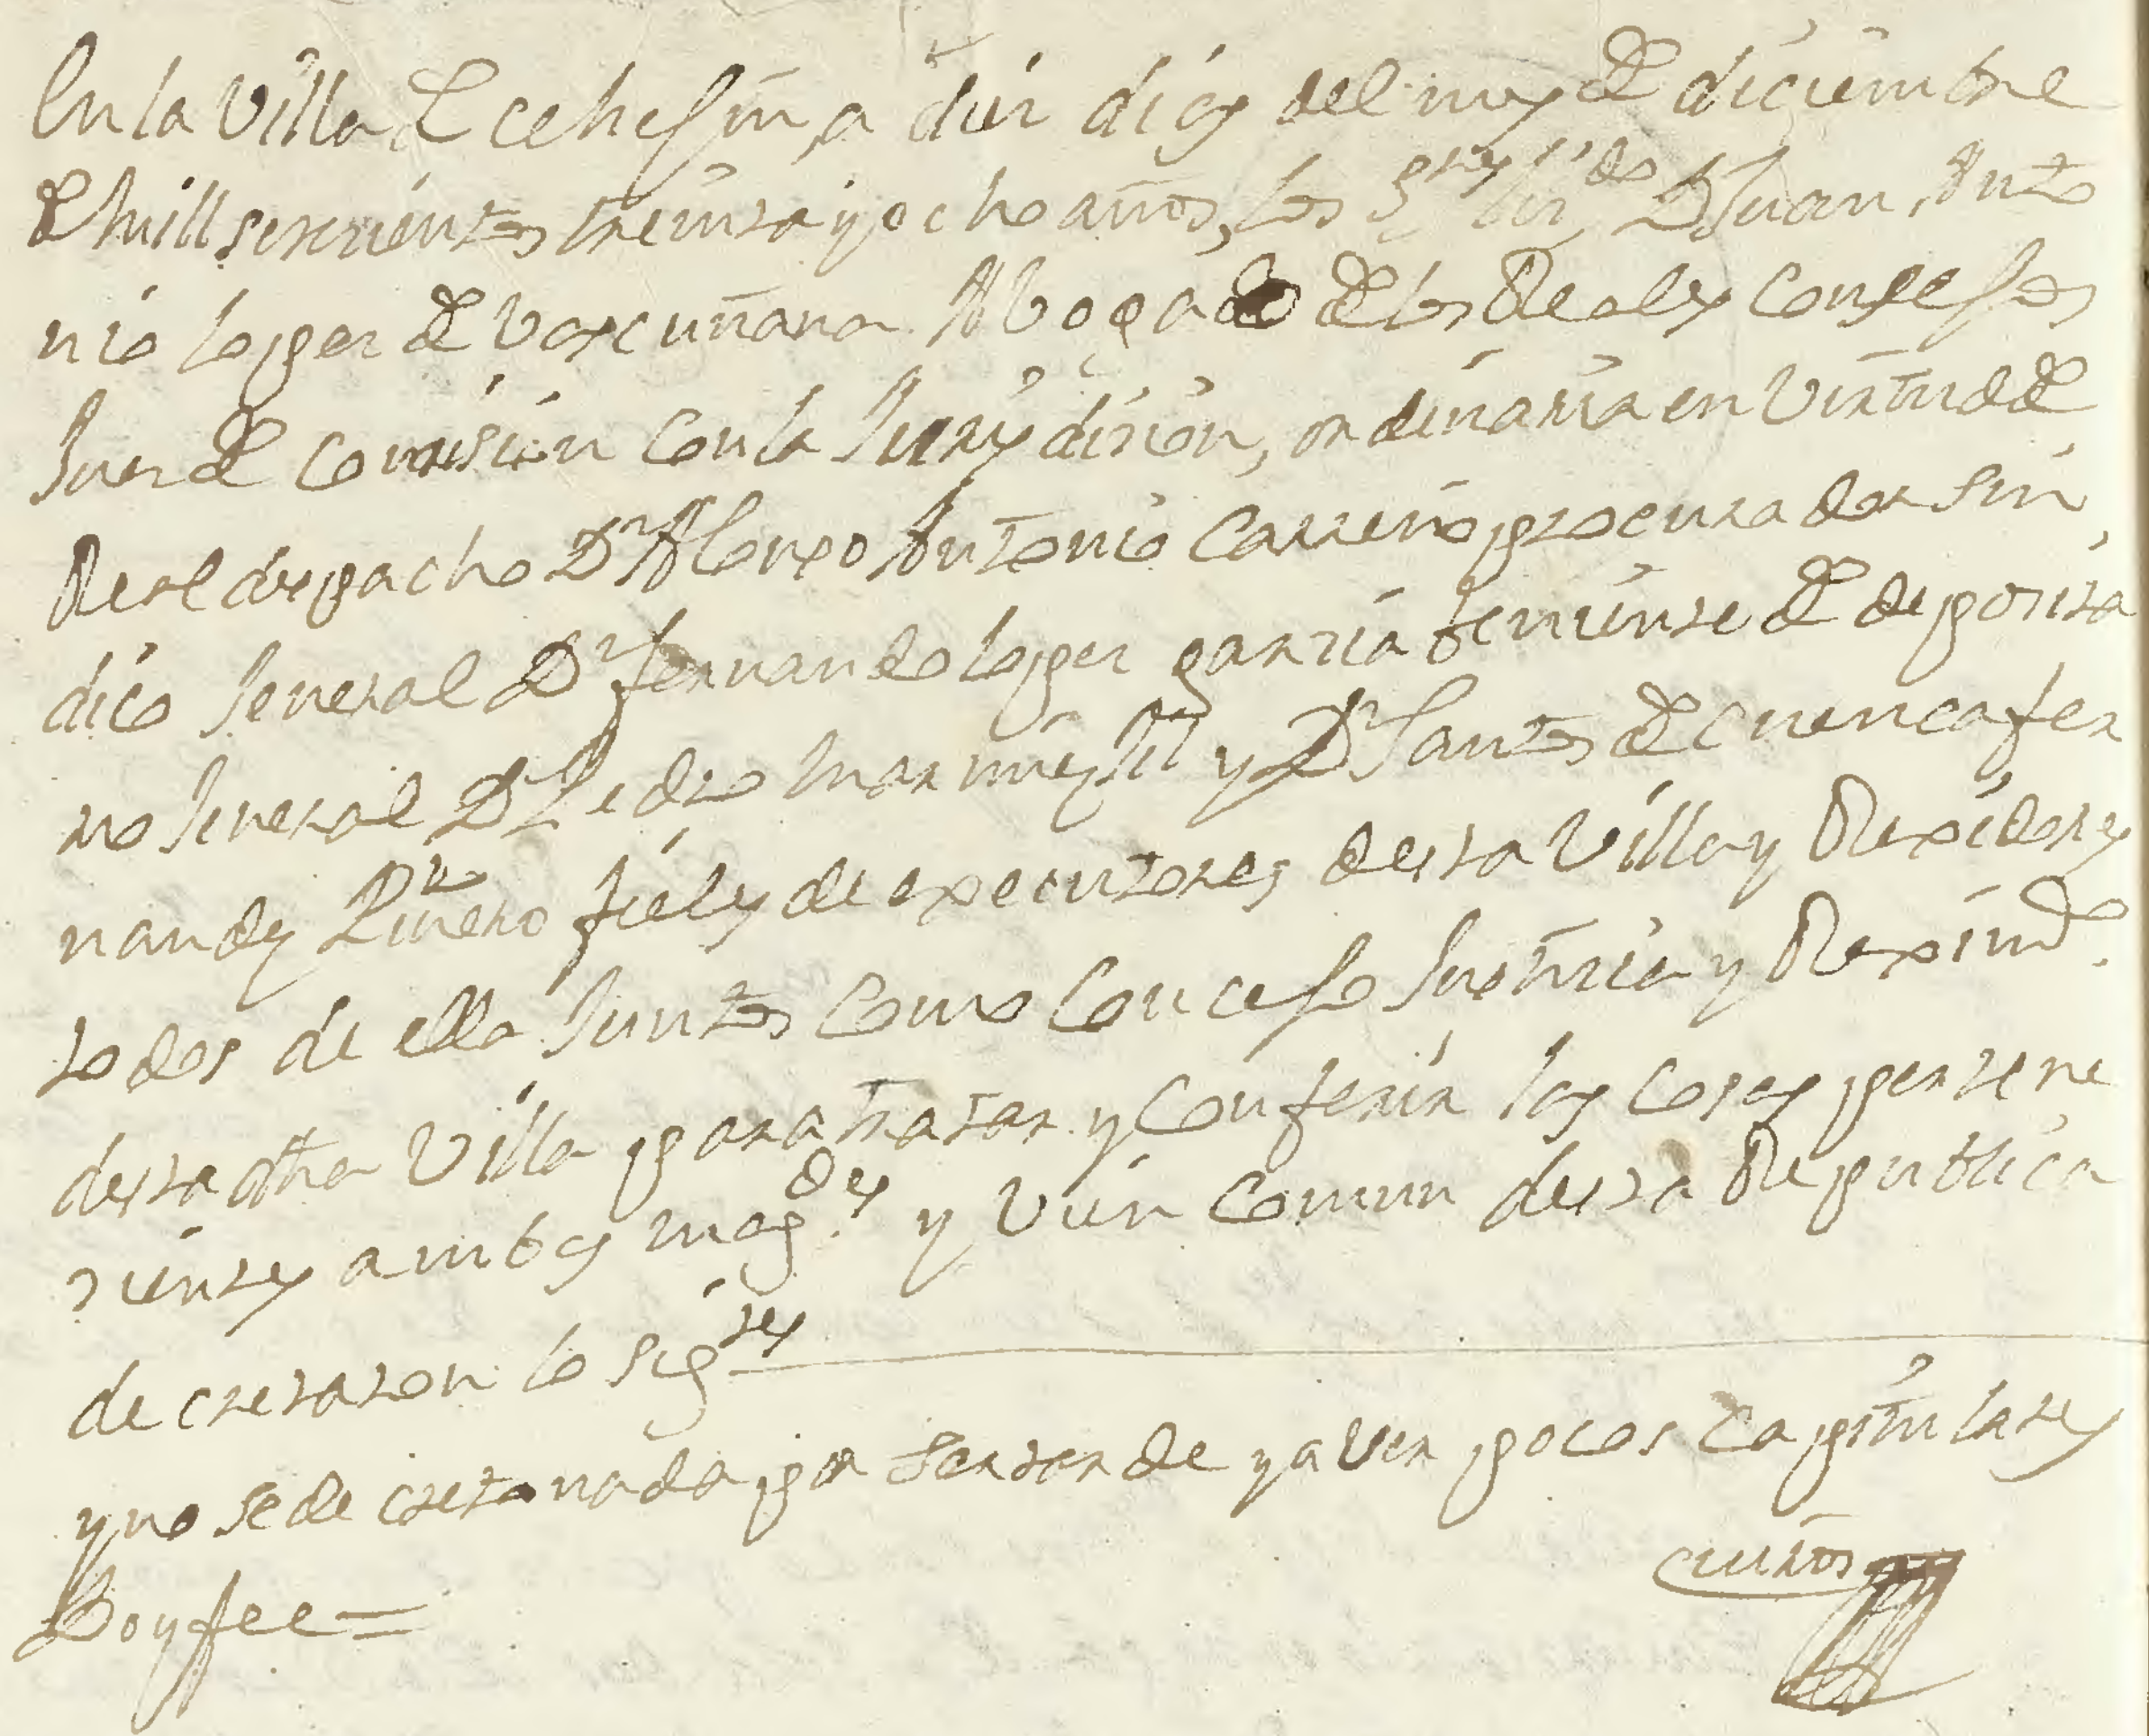 En la Villa de cehejin, a diez dias del mes de diciiembre
de mill setecientos treinta y ocho años, los Sres lizdo Dn Juan Anto
nio lopez de Vascuñana Abogado de los Reales Consejos
Juez de Comision Con la Jurisdizion, ordinaria en Virtud de
Real despacho Dn Alonso Antonio Carreño procurador sin
dico Jeneral Dn fernando lopez garzia teniente de deposita
rio Jeneral Dn Pedro Mar y Dn Santos de cuenca fer
nandez Piñero fieles de executores desta Villa y Rexidores
todos de ella Juntos Como Concejo Justizia y Reximto.
desta dha Villa para tratar y Conferir las Cosas pertene
zientes ambas magdes. y Vien Comun desta Republica
decretaron lo sigtes
y no se decreto nada por tratar de y aver pocos Capitulares
Doy fee =